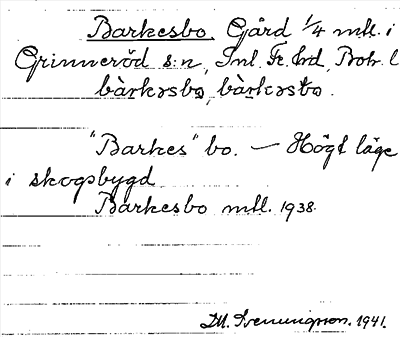 Barkesbo. Gård 1/4 mtl. i
Grinneröd s:n, Inl. Fr. hrd, Boh. l
bàrkəsbo, bàrkəsbo.
"Barkes" bo. — Högt läge
i skogsbygd
Barkesbo mtl. 1938.
1941.